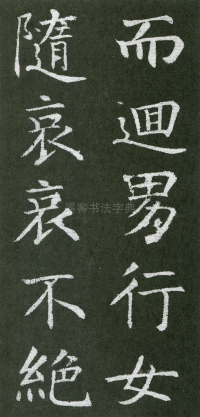 而迴男行女
隨哀哀不絶
墨客书法字典